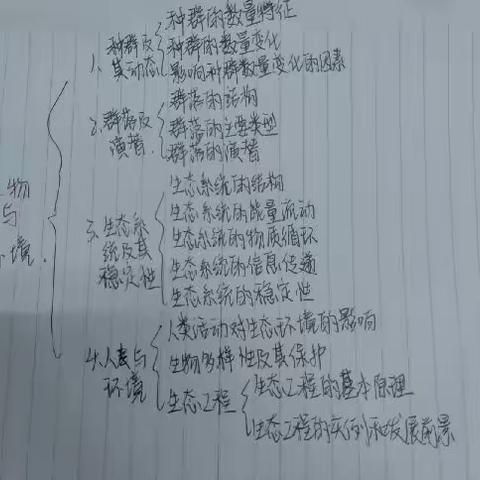 物
与
境.
1、种群及
其动态
种群的数量特征
种群的数量变化
影响种群数量变化的因素
2、群落及
演替.
群落的结构
群落的主要类型
群落的演替
3、生态系
统及其
稳定性
生态系统的结构
生态系统的能量流动
生态系统的物质循环
生态系统的信息传递
生态系统的稳定性
4、人类与
环境
人类活动对生态环境的影响
生物多样性及其保护
生态工程
生态工程的基本原理
生态工程的实例和发展前景